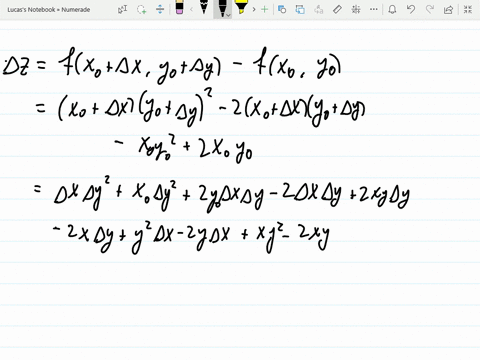 Lucas's Notebook + Numerade
Δz = f(x₀+Δx, y₀+Δy) − f(x₀, y₀)
= (x₀+Δx)(y₀+Δy)² − 2(x₀+Δx)(y₀+Δy)
− x₀y₀² + 2x₀y₀
= ΔxΔy² + x₀Δy² + 2y₀ΔxΔy − 2ΔxΔy + 2xyΔy
− 2xΔy + y²Δx − 2yΔx + xy² − 2xy